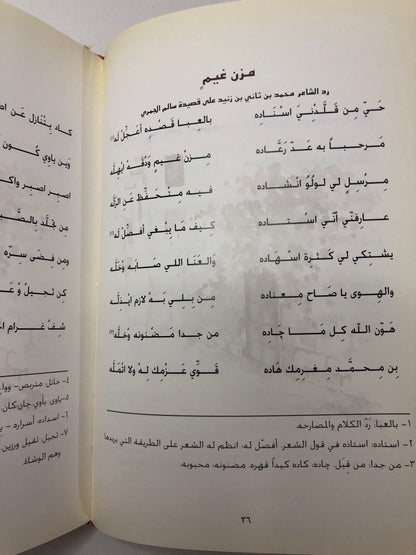 مزن غيمٍ
رد الشاعر محمد بن ثاني بن زنيد على قصيدة سالم الجمري
حَيّ مِن قَلَّدْنِيَ اسْنَاده
بالعبا قَصْده أَعَجِّل لَه (١)
مَرحبـاً به عَدّ رَعَّاده
مِزنْ غيمٍ وَدْقَه اِيْهلَّه
مِرْسلٍ لي لُولُوْ انْشاده
فيه مِتْحَفِّظ عَن الزلَّه
عـارفنِّي أنّي اسْتـاده
كيف مَا يبْغي أفصِّل لَه (٢)
يشتكي لي كَثِرة اسْهاده
والعَنَا اللي صَابه وُحَلَّه
والهوى يا صَاح معتاده
مِن بِلِي بَه لازم ايْذِلَّه
هَوّن الله كل مَا چَاده
من جدا مَضْنونه وُخلَّه (٣)
بِن محمَّد مغرمك هَاده
قَوِّي عَزمك لِه ولا اتْملَّه
١- بالعبا: رَدّ الكلام والمصارحه.
٢- استاده: استاده في قول الشعر. أفصّل له: انظم له الشعر على الطريقة التي يريدها
٣- من جدا: من قِبَل. چاده: كاده كيداً قهره. مضنونه: محبوبه.
٣٦
كاد يِتْنَازل عَن
وين ياوي كُون
اصبر اصبر واكـ
من تجلَّد بالصَّبـ
ومِن فِضَى سِرّه
كن ثجيل وُ عَـ
شِفْ غـرام
٤- خاتل: متربص- ووا
٥- ياوي: يأوي. چان: كان.
٦- اسداده: أسراره –
٧- ثجيل: ثقيل ورزين
وهم الوشاة.